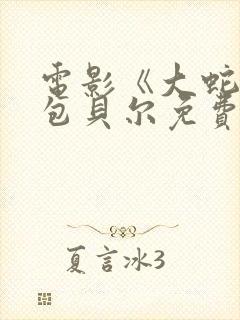 電影《大蛇
包貝尔免費
夏言冰3